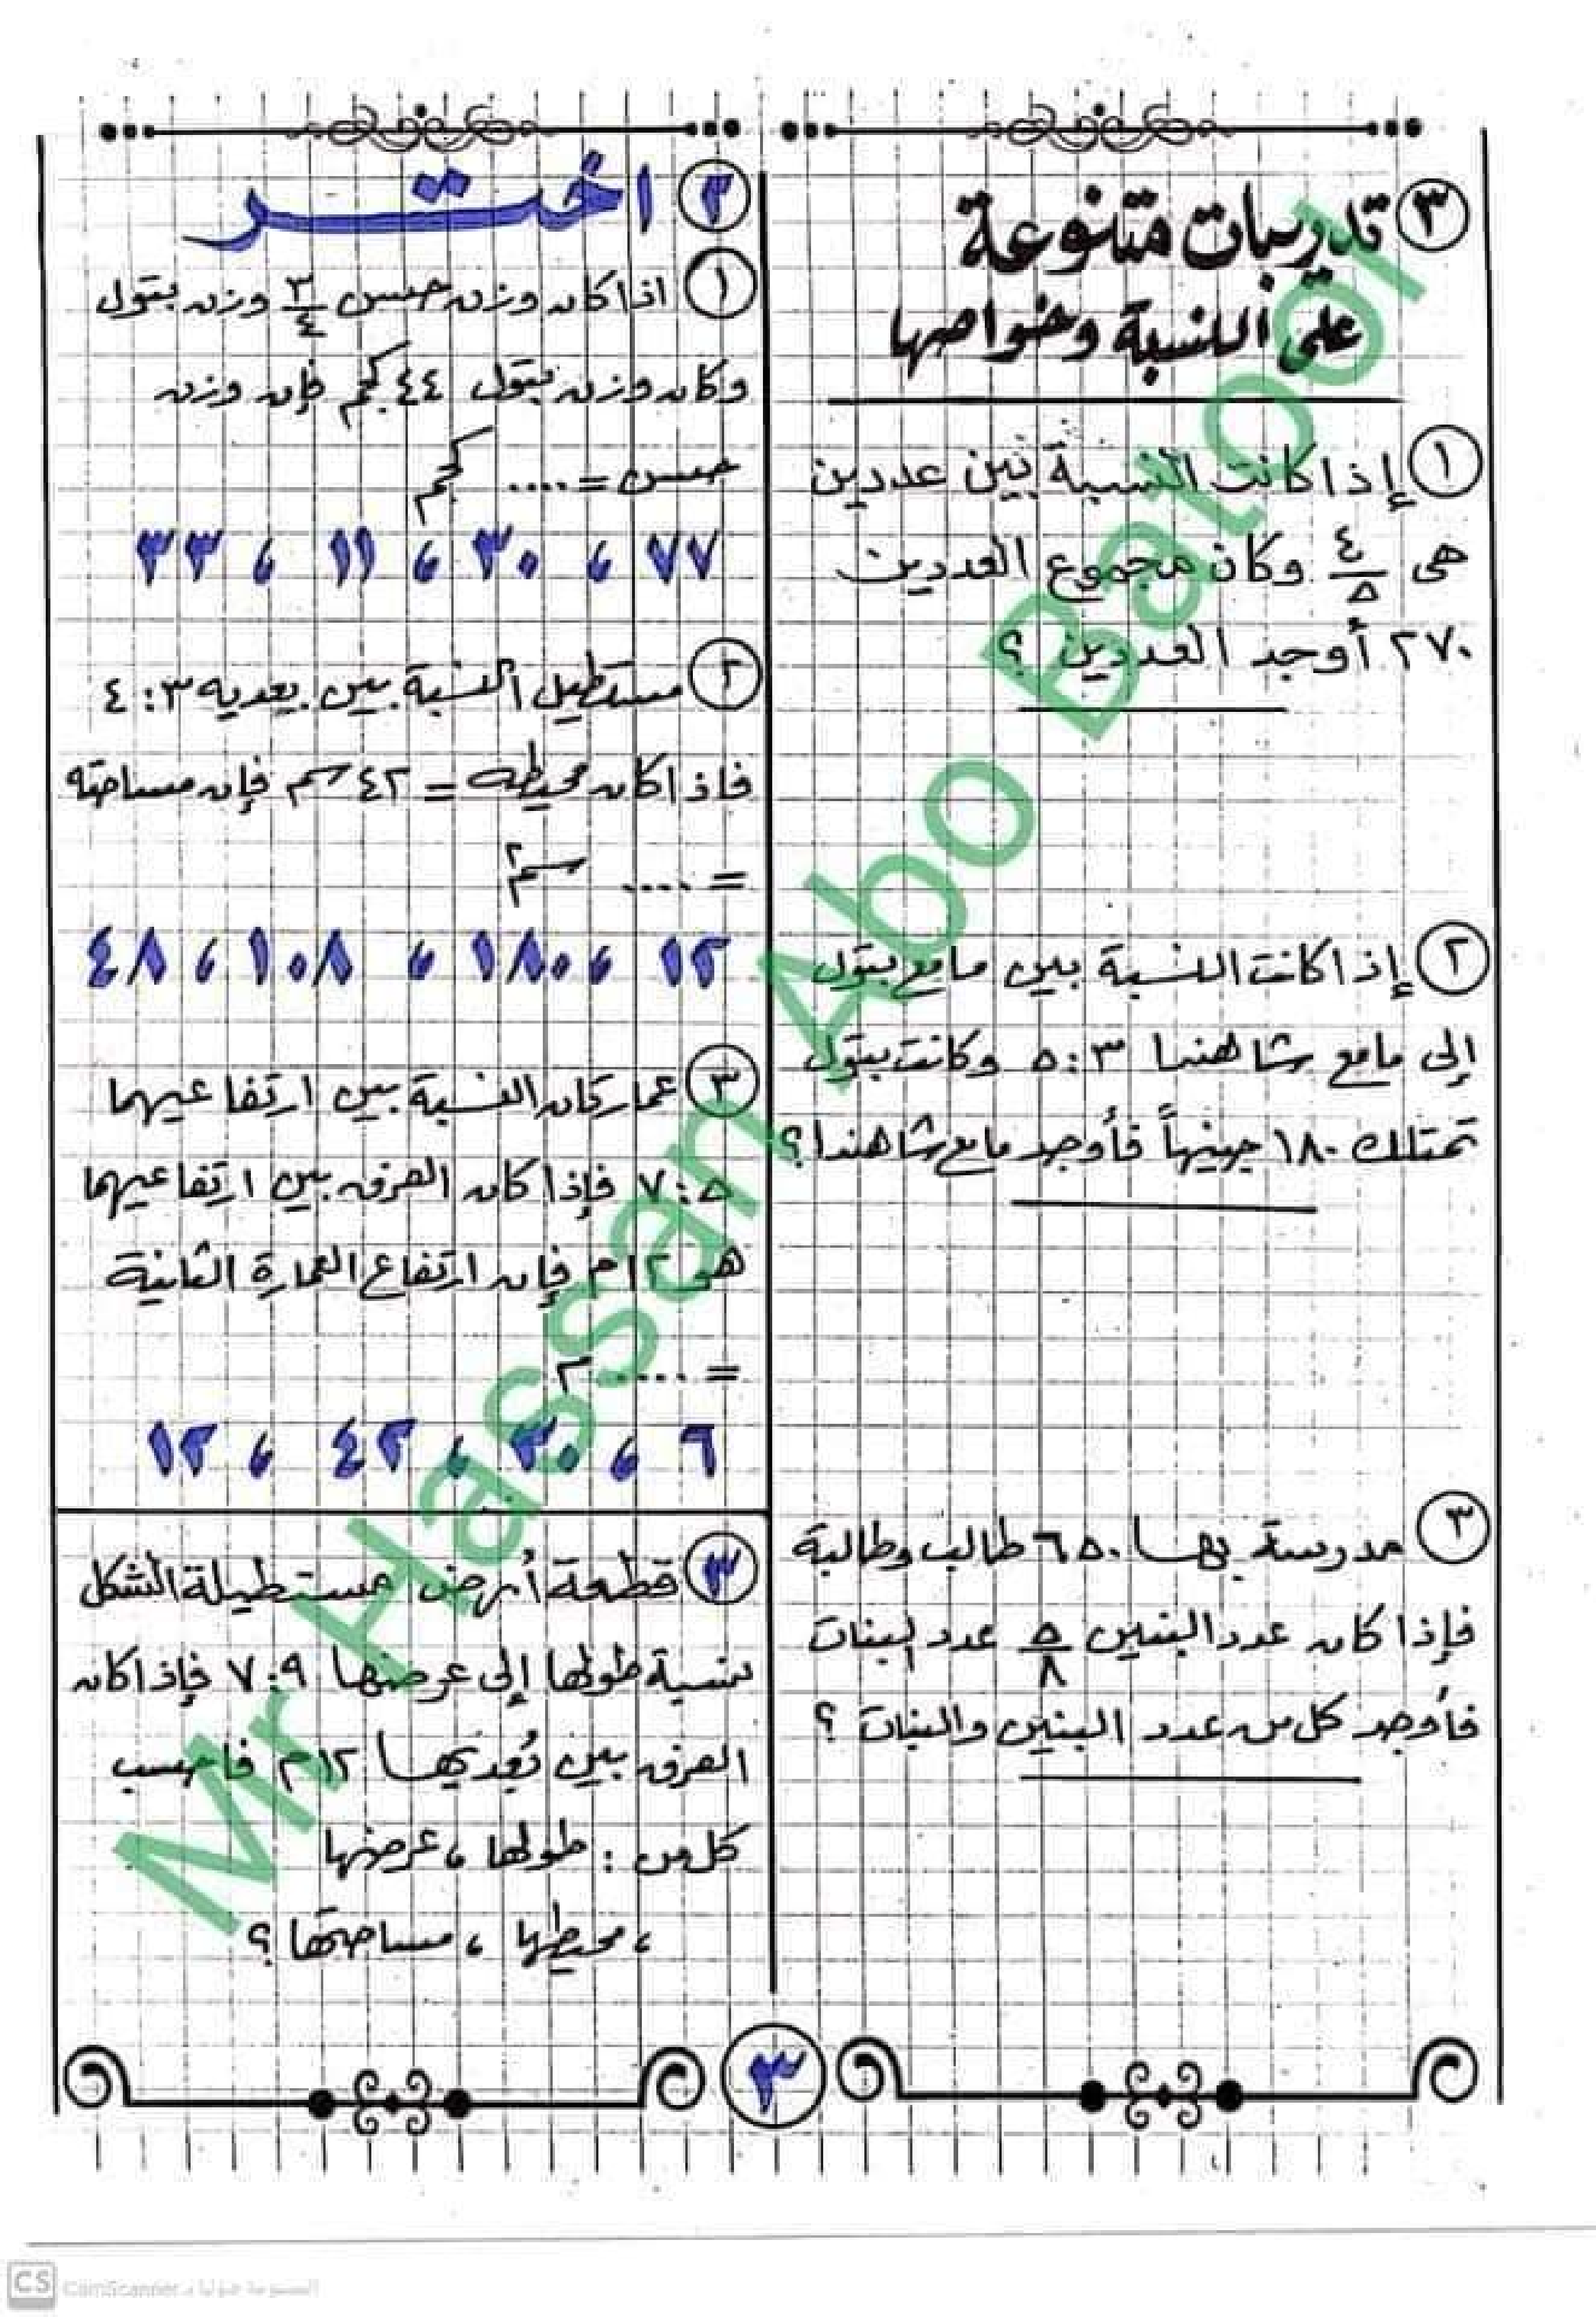 ٣ تدريبات متنوعة
على النسبة وخواصها
١ إذا كانت النسبة بين عددين
هى ٤/٥ وكان مجموع العددين
٢٧٠ أوجد العددين ؟
٢ إذا كانت النسبة بين مامع بتول
إلى مامع شاهندا ٣ : ٥ وكانت بتول
تمتلك ١٨٠ جنيهاً فأوجد مامع شاهندا ؟
٣ مدرسة بها ٦٥٠ طالب وطالبة
فإذا كان عدد البنين ٥/٨ عدد البنات
فأوجد كل من عدد البنين والبنات ؟
٢ اختر
١ اذا كان وزن حسن ٣/٤ وزن بتول
وكان وزن بتول ٤٤ كجم فإن وزن
حسن = .... كجم
٧٧ ، ٣٠ ، ١١ ، ٣٣
٢ مستطيل النسبة بين بعديه ٣ : ٤
فاذا كان محيطه = ٤٢ سم فإن مساحته
= .... سم٢
١٢ ، ١٨٠ ، ١٠٨ ، ٤٨
٣ عمارتان النسبة بين ارتفاعيهما
٥ : ٧ فإذا كان الفرق بين ارتفاعيهما
هو ١٢م فإن ارتفاع العمارة الثانية
= .... م
٦ ، ٣٠ ، ٤٢ ، ١٢
٣ قطعة أرض مستطيلة الشكل
نسبة طولها إلى عرضها ٩ : ٧ فإذا كان
الفرق بين بُعديها ١٢م فاحسب
كل من : طولها ، عرضها
، محيطها ، مساحتها ؟
٣
Mr Hassan Abo Batool
CS CamScanner الممسوحة ضوئيا بـ